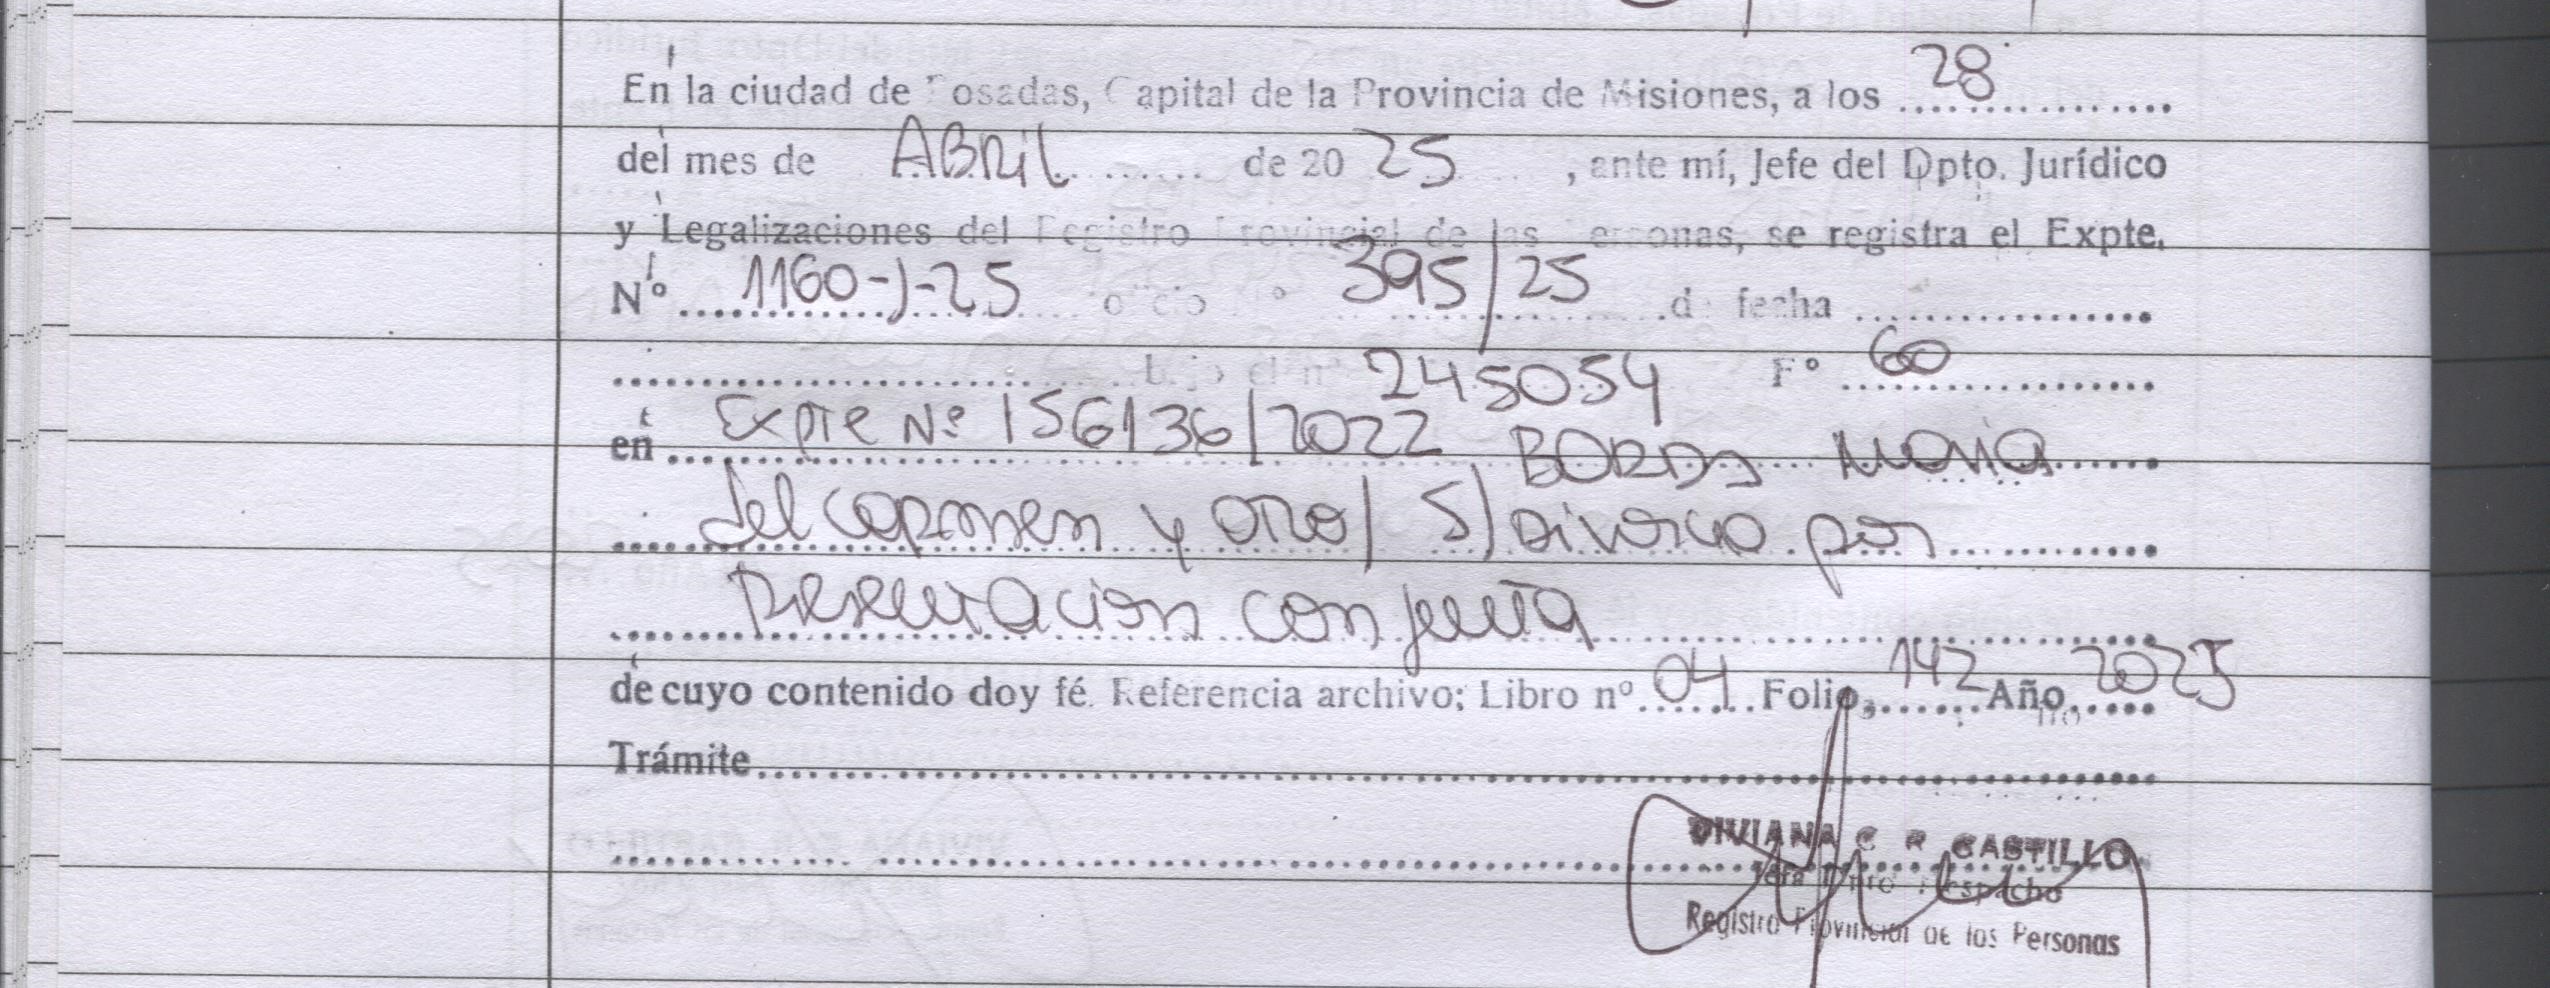 En la ciudad de Posadas, Capital de la Provincia de Misiones, a los 28
del mes de ABRIL de 20 25, ante mí, Jefe del Dpto. Jurídico
y Legalizaciones del Registro Provincial de las Personas, se registra el Expte.
Nº 1160-J-25 oficio nº 395/25 de fecha
bajo el nº 245054 Fº 60
en Expte Nº 156136/2022 BORDA Maria
del carmen y otro/ S/ Divorcio por
Presentacion conjunta
de cuyo contenido doy fé. Referencia archivo; Libro nº 04 Folio, 142 Año 2025
Trámite
VIVIANA C R CASTILLO
Jefa Dpto Despacho
Registro Provincial de las Personas